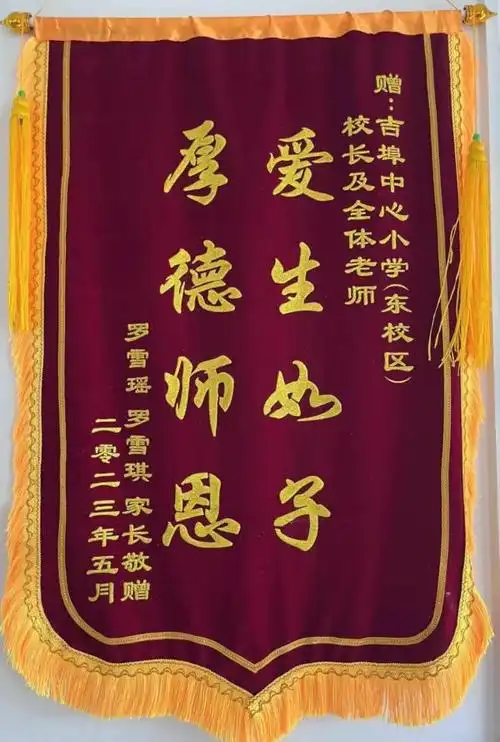 赠：吉埠中心小学（东校区）
校长及全体老师
爱生如子
厚德师恩
罗雪瑶 罗雪琪 家长敬赠
二零二三年五月